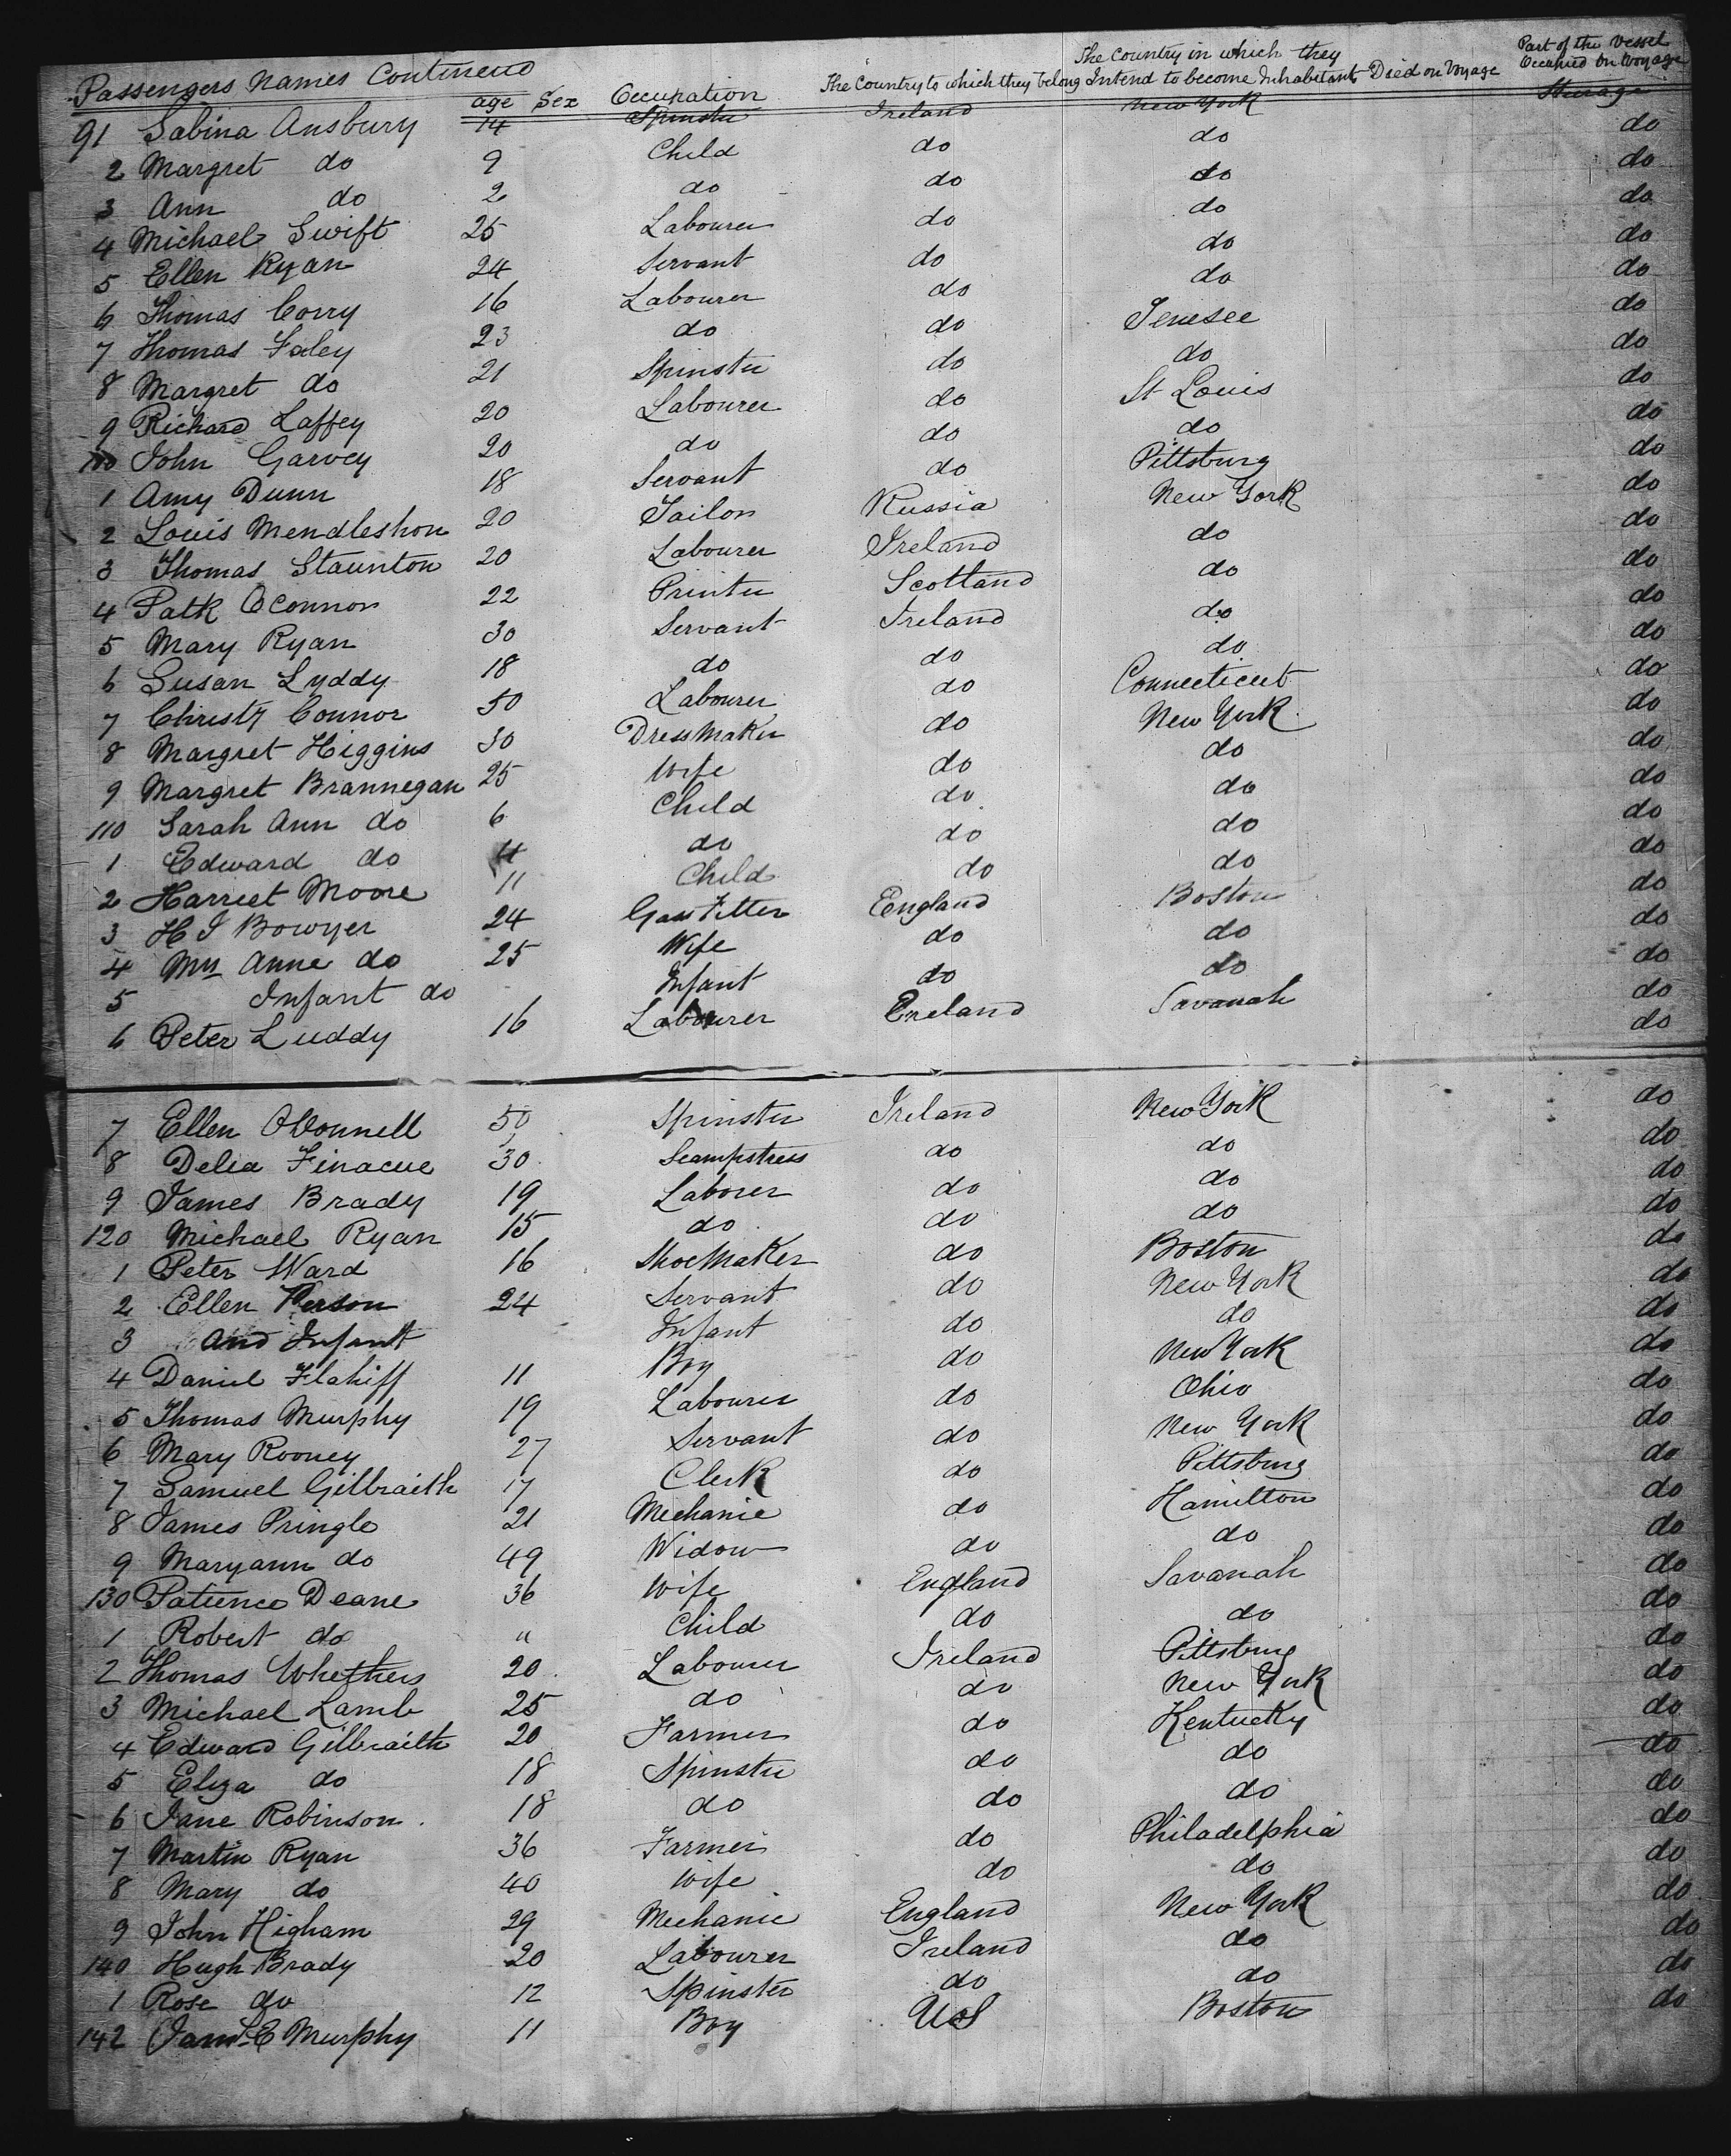 Passengers Names Continued age Sex Occupation The Country to which they belong The Country in which they Intend to become Inhabitants Died on Voyage Part of the Vessel Occupied on Voyage
91 Sabina Ansbury 14 Spinster Ireland New York Steerage
2 Margret do 9 Child do do do
3 Ann do 2 do do do do
4 Michael Swift 25 Labourer do do do
5 Ellen Ryan 24 Servant do do do
6 Thomas Corry 16 Labourer do do do
7 Thomas Faley 23 do do Tenesee do
8 Margret do 21 Spinster do do do
9 Richard Laffey 20 Labourer do St Louis do
100 John Garvey 20 do do do do
1 Amy Dunn 18 Servant do Pittsburg do
2 Louis Mendleshon 20 Tailor Russia New York do
3 Thomas Staunton 20 Labourer Ireland do do
4 Patk OConnor 22 Printer Scotland do do
5 Mary Ryan 30 Servant Ireland do do
6 Susan Lyddy 18 do do do do
7 Christy Connor 50 Labourer do Connecticut do
8 Margret Higgins 30 DressMaker do New York do
9 Margret Brannegan 25 Wife do do do
110 Sarah Ann do 6 Child do do do
1 Edward do 4 do do do do
2 Harriet Moore 11 Child do do do
3 H J Bowyer 24 Gass Fitter England Boston do
4 Mrs Anne do 25 Wife do do do
5 Infant do Infant do do do
6 Peter Luddy 16 Labourer Ereland Savanah do
7 Ellen OConnell 50 Spinster Ireland New York do
8 Delia Finacue 30 Seampstress do do do
9 James Brady 19 Laborer do do do
120 Michael Ryan 15 do do do do
1 Peter Ward 16 ShoeMaker do Boston do
2 Ellen Person 24 Servant do New York do
3 and Infant Infant do do do
4 Daniel Flahiff 11 Boy do New York do
5 Thomas Murphy 19 Labourer do Ohio do
6 Mary Rooney 27 Servant do New York do
7 Samuel Gilbraith 17 Clerk do Pittsburg do
8 James Pringle 21 Mechanic do Hamilton do
9 Maryann do 49 Widow do do do
130 Patience Deane 36 Wife England Savanah do
1 Robert do 11 Child do do do
2 Thomas Whethers 20 Labourer Ireland Pittsburg do
3 Michael Lamb 25 do do New York do
4 Edward Gilbraith 20 Farmer do Kentucky do
5 Eliza do 18 Spinster do do do
6 Jane Robinson 18 do do do do
7 Martin Ryan 36 Farmer do Philadelphia do
8 Mary do 40 Wife do do do
9 John Higham 29 Mechanic England New York do
140 Hugh Brady 20 Labourer Ireland do do
1 Rose do 12 Spinster do do do
142 Jams E Murphy 11 Boy US Boston do